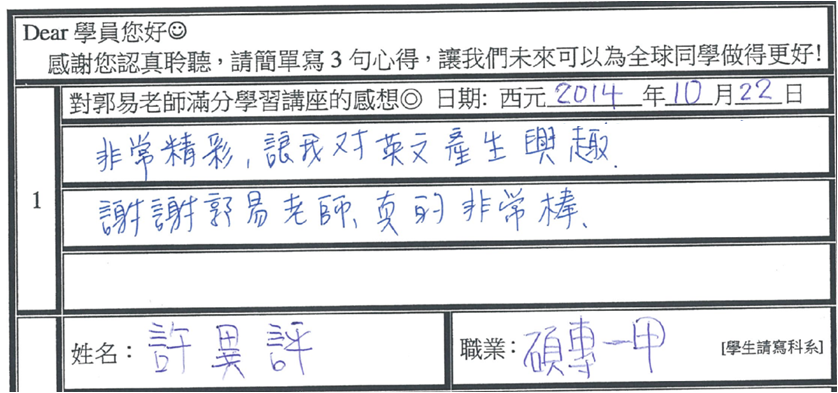 Dear 學員您好☺
感謝您認真聆聽，請簡單寫3句心得，讓我們未來可以為全球同學做得更好!
1
對郭易老師滿分學習講座的感想◎ 日期: 西元 2014 年 10 月 22 日
非常精彩,讓我对英文產生興趣.
謝謝郭易老師、真的非常棒、
姓名： 許異評
職業： 碩專一甲 [學生請寫科系]